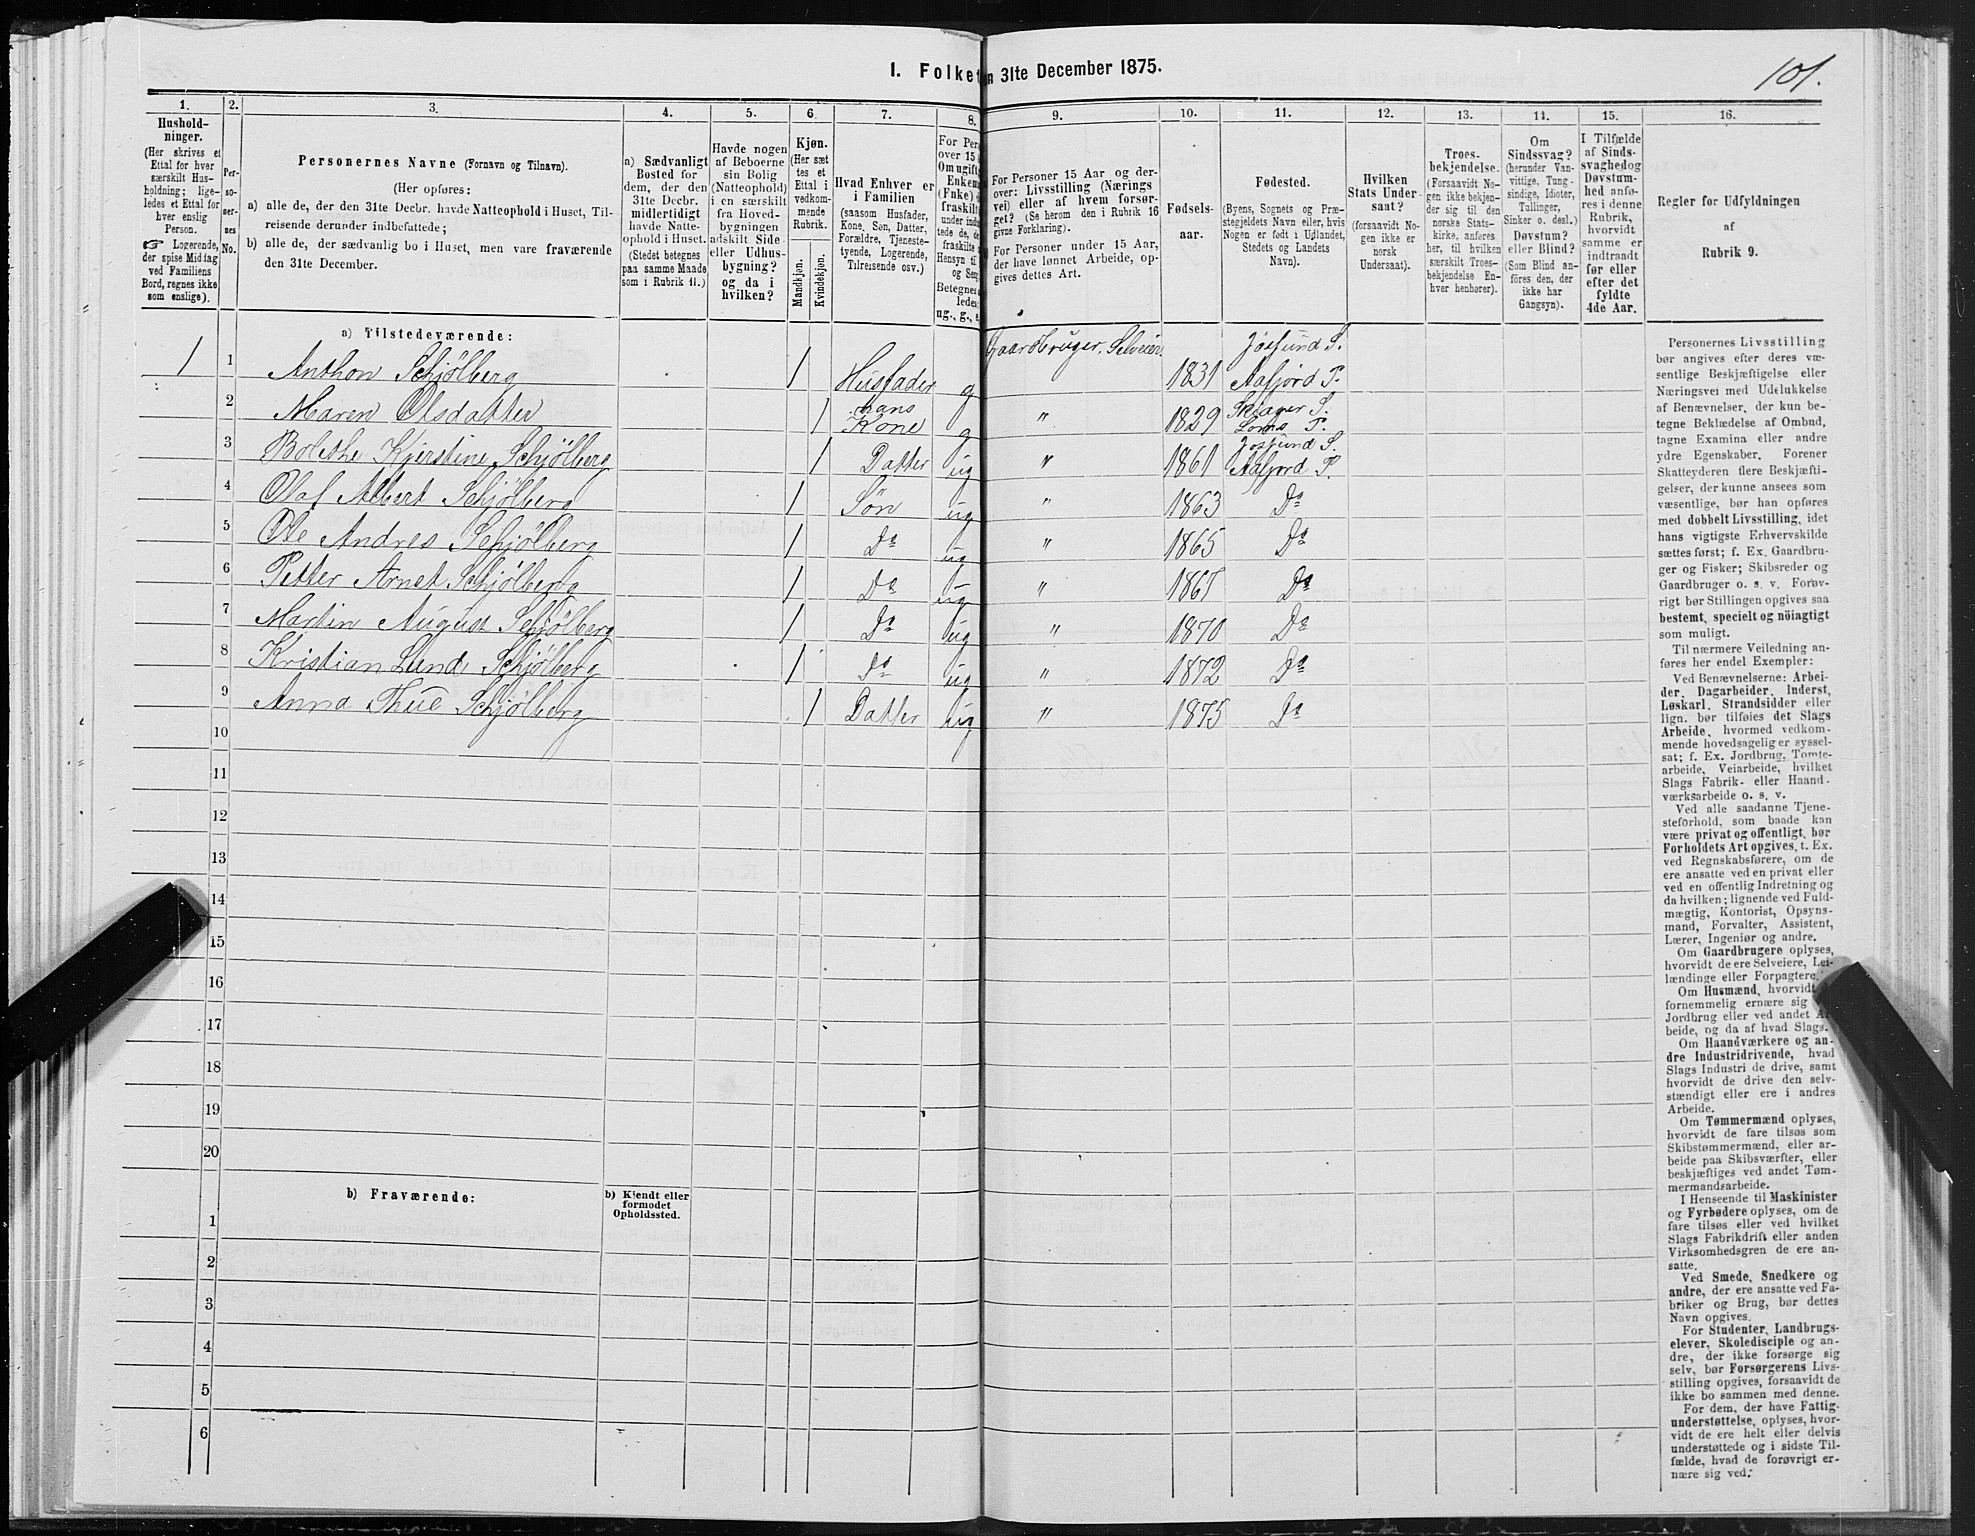 101.
1. Folket
n 31te December 1875.
1.
2.
3.
4.
5.
6.
7.
8.
9.
10.
11.
12.
13.
14.
15.
16.
Hushold-
ninger.
(Her skrives et
Ettal for hver
særskilt Hus-
holdning; lige-
ledes et Ettal for
hver enslig
Person.
☞ Logerende,
der spise Middag
ved Familiens
Bord, regnes ikke
som enslige).
Per-
so-
ner-
nes
No.
Personernes Navne (Fornavn og Tilnavn).
(Her opføres:
a) alle de, der den 31te Decbr. havde Natteophold i Huset, Til-
reisende derunder indbefattede;
b) alle de, der sædvanlig bo i Huset, men vare fraværende
den 31te December.
a) Sædvanligt
Bosted for
dem, der den
31te Decbr.
midlertidigt
havde Natte-
ophold i Huset.
(Stedet betegnes
paa samme Maade
som i Rubrik 11.)
Havde nogen
af Beboerne
sin Bolig
(Natteophold)
i en særskilt
fra Hoved-
bygningen
adskilt Side-
eller Udhus-
bygning?
og da i
hvilken?
Kjøn.
(Her sæt
tes et
Ettal i
vedkom-
mende
Rubrik.
Mandkjøn.
Kvindekjøn.
Hvad Enhver er
i Familien
(saasom Husfader,
Kone, Søn, Datter,
Forældre, Tjeneste-
tyende, Logerende,
Tilreisende osv.)
For Per
over 15
Om ugift
Enkem
(Fnke)
fraskilt
under indbe
tede de, d
fraskilte
Hensyn til
og Seng
Betegnes
ledes:
ug., g., e
For Personer 15 Aar og der-
over: Livsstilling (Nærings
vei) eller af hvem forsør-
get? (Se herom den i Rubrik 16
givne Forklaring).
For Personer under 15 Aar,
der have lønnet Arbeide, op-
gives dettes Art.
Fødsels-
aar.
Fødested.
(Byens, Sognets og Præ-
stegjeldets Navn eller, hvis
Nogen er født i Uglandet,
Stedets og Landets
Navn).
Hvilken
Stats Under-
saat?
(forsaavidt No-
gen ikke er
norsk
Undersaat).
Troes-
bekjendelse.
(Forsaavidt No-
gen ikke bekjen-
der sig til den
norske Stats-
kirke, anføres
her, til hvilken
særskilt Troes-
bekjendelse En-
hver henhører).
Om
Sindssvag?
(herunder Van-
vittige, Tung-
sindige, Idioter,
Tullinger,
Sinker o. desl.)
Døvstum?
eller Blind?
(Som Blind an-
føres den, der
ikke har
Gangsyn).
I Tilfælde
af Sinds-
svaghed og
Døvstum-
hed anfø-
res i denne
Rubrik,
hvorvidt
samme er
indtraadt
før eller
efter det
fyldte
4de Aar.
Regler for Udfyldningen
af
Rubrik 9.
a) Tilstedeværende:
1 1 Anthon Schjølberg 1 Husfader g Gaardbruger, Selveier 1831 Jøssund S. Aafjord P.
2 Maren Olsdatter 1 hans Kone g " 1829
3 Bolethe Kjerstine Schjølberg 1 Datter ug " 1861 Jøssund S. Aafjord P.
4 Olaf Albert Schjølberg 1 Søn ug " 1863 Do
5 Ole Andres Schjølberg 1 Do ug " 1865 Do
6 Petter Arnet Schjølberg 1 Do ug " 1867 Do
7 Martin August Schjølberg 1 Do ug " 1870 Do
8 Kristian Lund Schjølberg 1 Do ug " 1872 Do
9 Anna Thue Schjølberg 1 Datter ug " 1875 Do
10
11
12
13
14
15
16
17
18
19
20
b) Fraværende:
b) Kjendt eller
formodet
Opholdssted.
1
2
3
4
5
6
Personernes Livsstilling
bør angives efter deres væ-
sentlige Beskjæftigelse eller
Næringsvei med Udelukkelse
af Benævnelser, der kun be-
tegne Beklædelse af Ombud,
tagne Examina eller andre
ydre Egenskaber. Forener
Skatteyderen flere Beskjæfti-
gelser, der kunne ansees som
væsentlige, bør han opføres
med dobbelt Livsstilling, idet
hans vigtigste Erhvervskilde
sættes først; f. Ex. Gaardbru-
ger og Fisker; Skibsreder og
Gaardbruger o. s. v. Forøv-
rigt bør Stillingen opgives saa
bestemt, specielt og nöiagtigt
som muligt.
Til nærmere Veiledning an-
føres her endel Exempler:
Ved Benævnelserne: Arbei-
der, Dagarbeider, Inderst,
Løskarl, Strandsidder eller
lign. bør tilføies det Slags
Arbeide, hvormed vedkom-
mende hovedsagelig er syssel-
sat; f. Ex. Jordbrug, Tomte-
arbeide, Veiarbeide, hvilket
Slags Fabrik- eller Haand-
værksarbeide o. s. v.
Ved alle saadanne Tjene-
steforhold, som baade kan
være privat og offentligt, bør
Forholdets Art opgives, t. Ex.
ved Regnskabsførere, om de
ere ansatte ved en privat eller
ved en offentlig Indretning og
da hvilken; lignende ved Fuld-
mægtig, Kontorist, Opsyns-
mand, Forvalter, Assistent,
Lærer, Ingeniør og andre.
Om Gaardbrugere oplyses,
hvorvidt de ere Selveiere, Lei-
lændinge eller Forpagtere.
Om Husmænd, hvorvidt
fornemmelig ernære sig
Jordbrug eller ved andet Ar
beide, og da af hvad Slags.
Om Haandværkere og an-
dre Industridrivende, hvad
Slags Industri de drive, samt
hvorvidt de drive den selv-
stændigt eller ere i andres
Arbeide.
Om Tømmermænd oplyses,
hvorvidt de fare tilsøs som
Skibstømmermænd, eller ar-
beide paa Skibsværfter, eller
beskjæftiges ved andet Tøm-
mermandsarbeide.
I Henseende til Maskinister
og Fyrbødere oplyses, om de
fare tilsøs eller ved hvilket
Slags Fabrikdrift eller anden
Virksomhedsgren de ere an-
satte.
Ved Smede, Snedkere og
andre, der ere ansatte ved Fa-
briker og Brug, bør dettes
Navn opgives.
For Studenter, Landbrugs-
elever, Skoledisciple og an-
dre, der ikke forsørge sig
selv, bør Forsørgerens Livs-
stilling opgives, forsaavidt de
ikke bo sammen med denne.
For dem, der have Fattig-
understøttelse, oplyses, hvor-
vidt de ere helt eller delvis
understøttede og i sidste Til-
fælde, hvad de forøvrigt er-
nære sig ved.